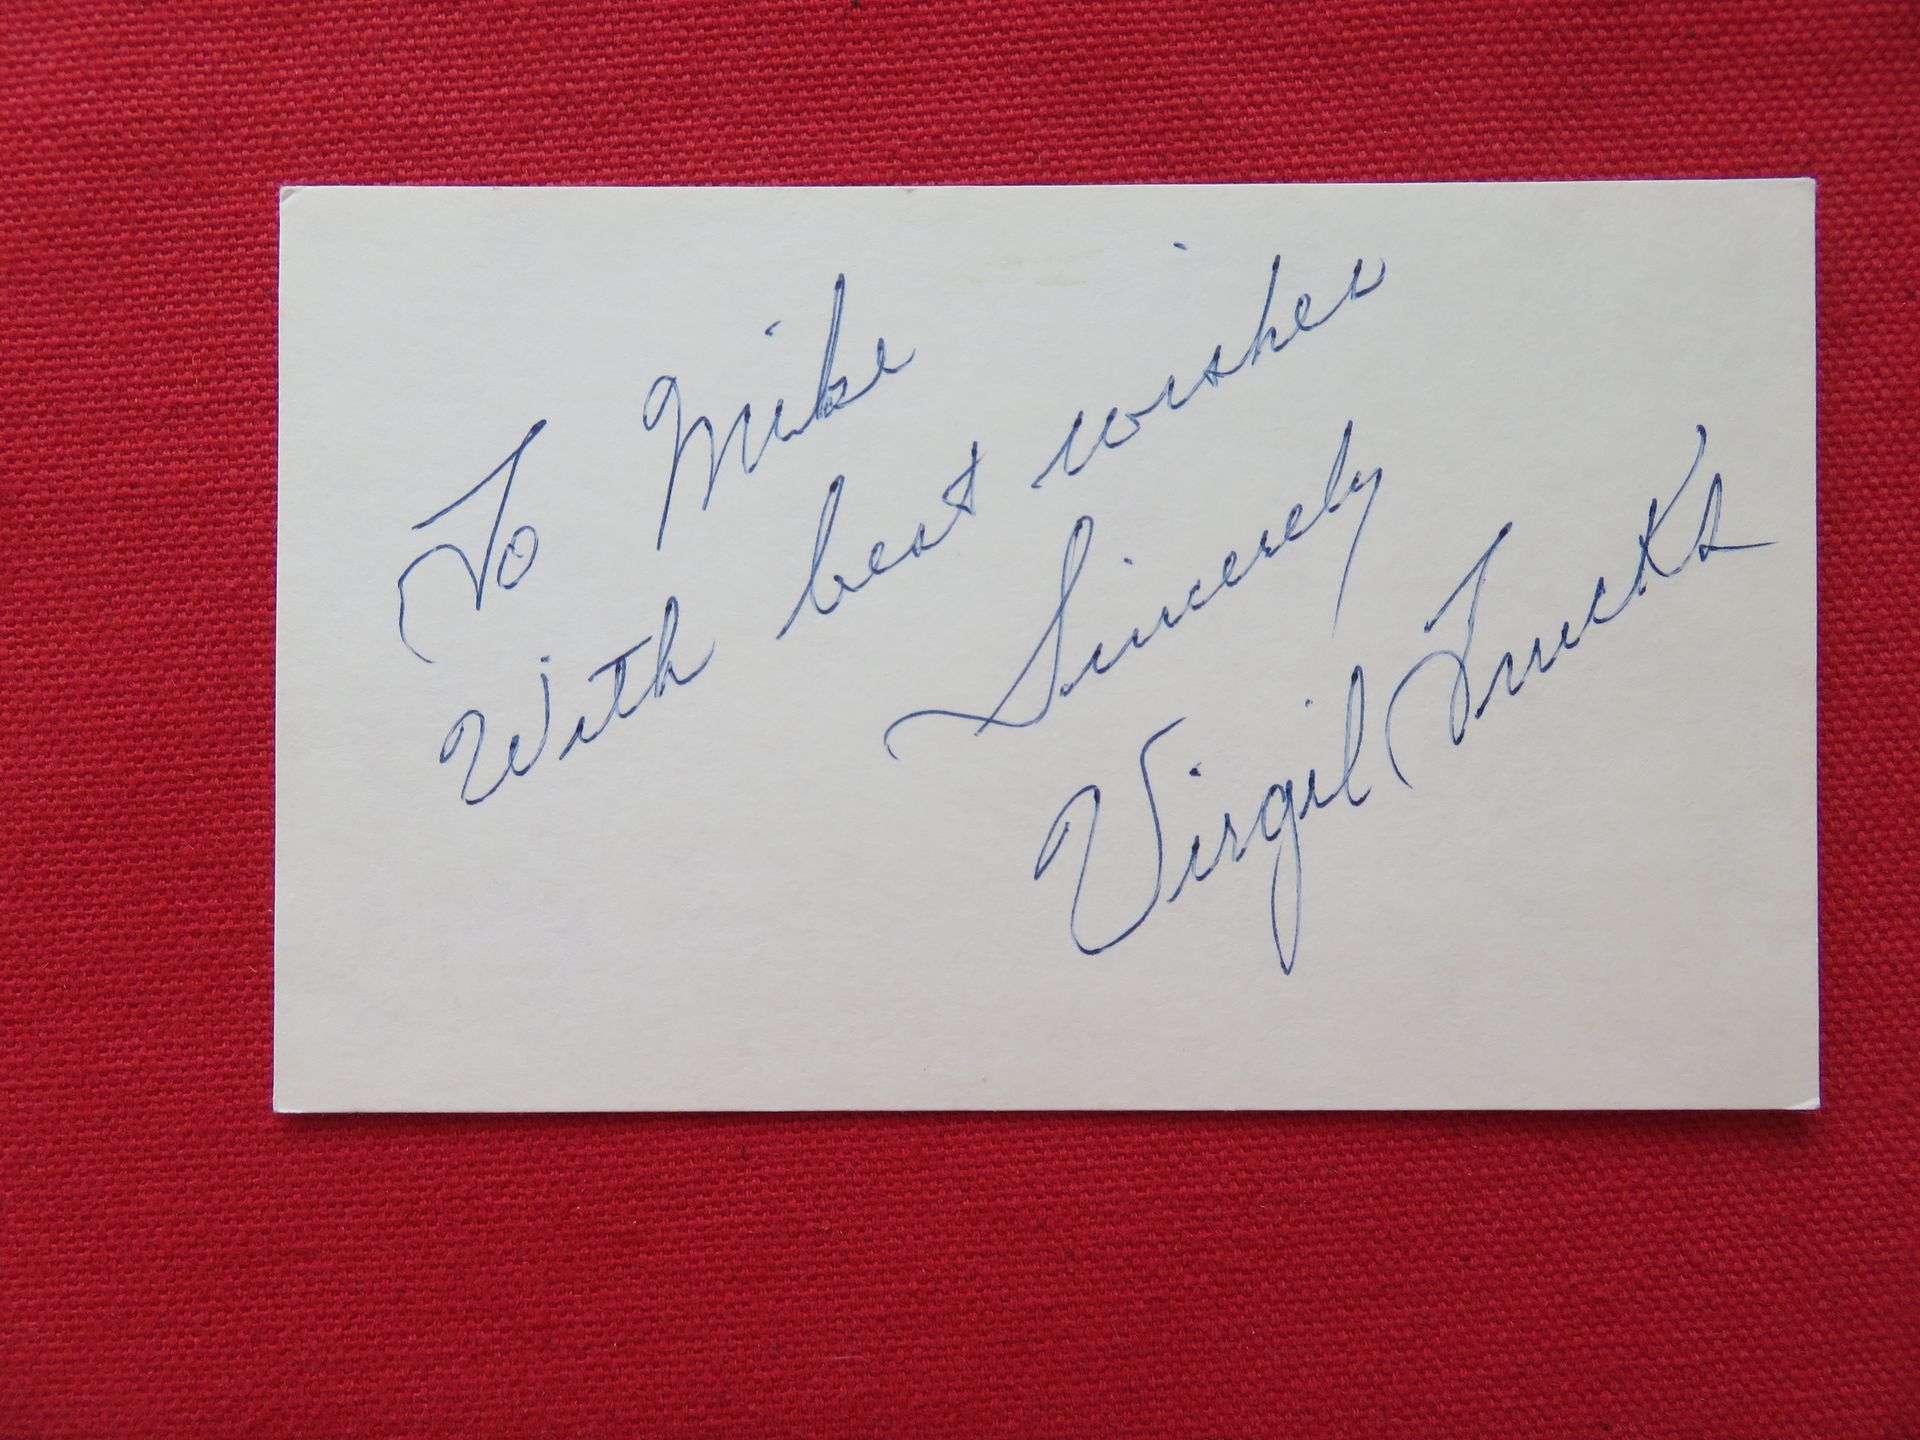 To Mike
With best wishes
Sincerely
Virgil Trucks